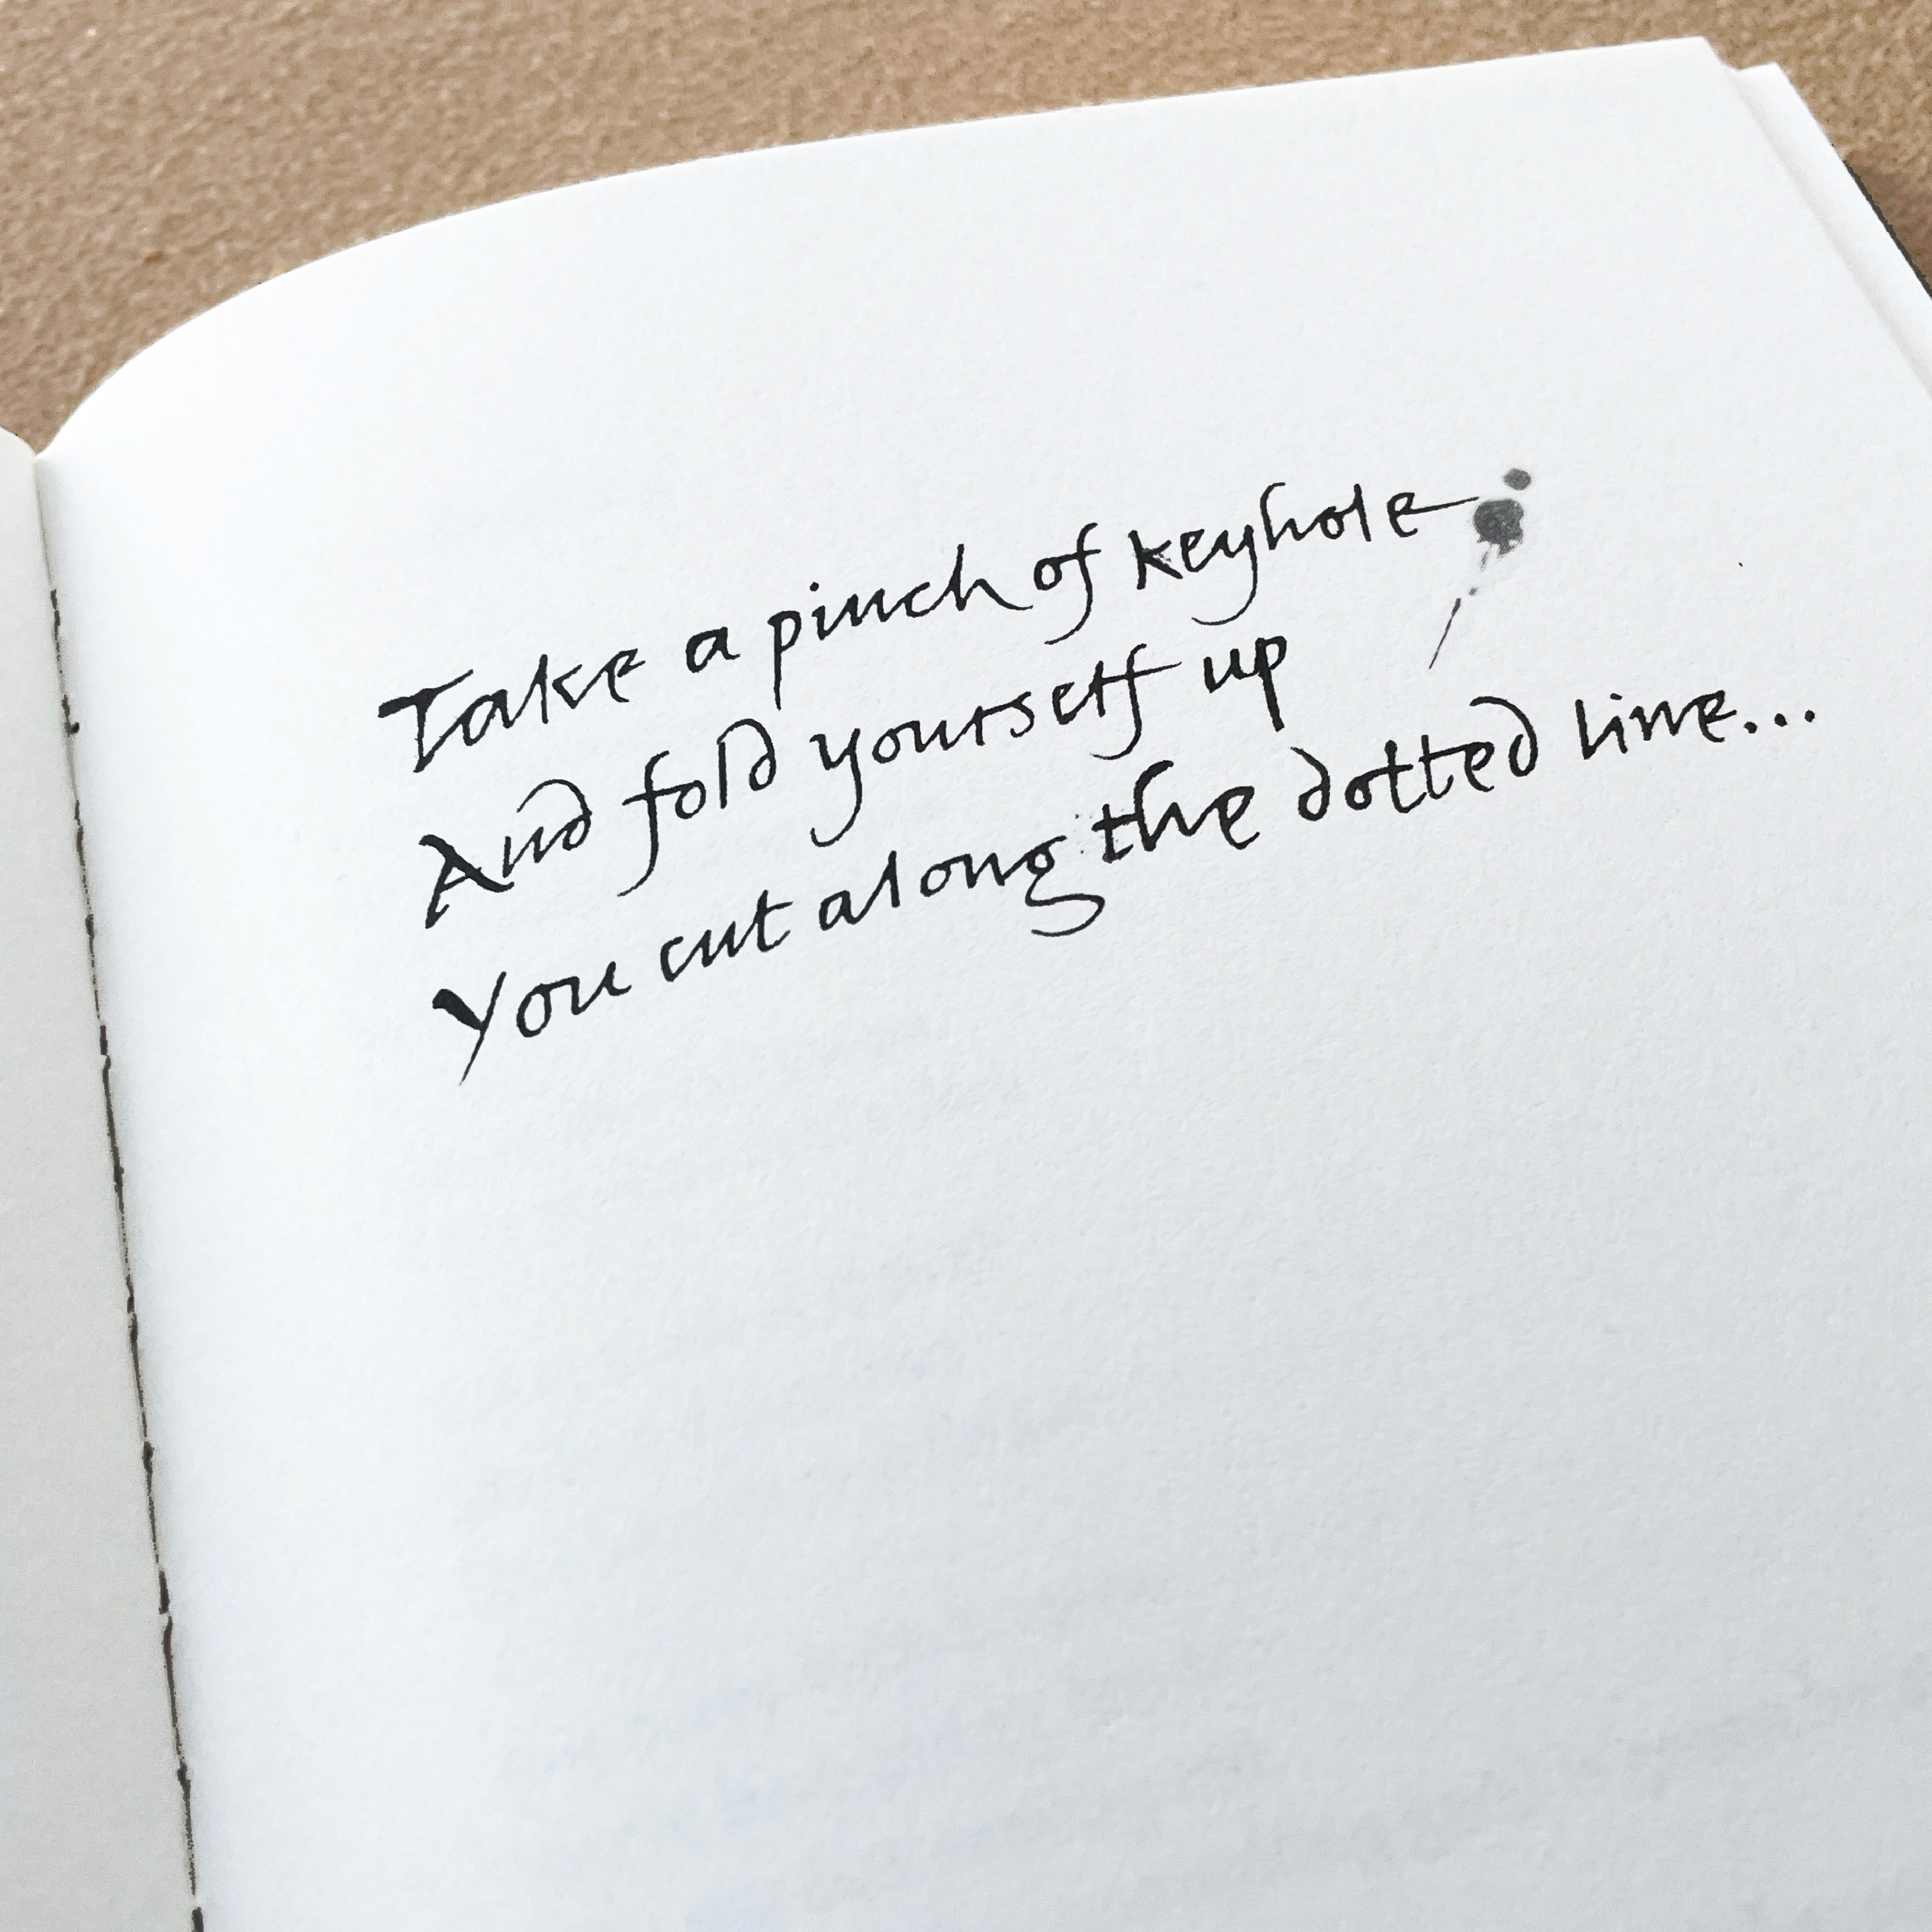 Take a pinch of keyhole
And fold yourself up
You cut along the dotted line...